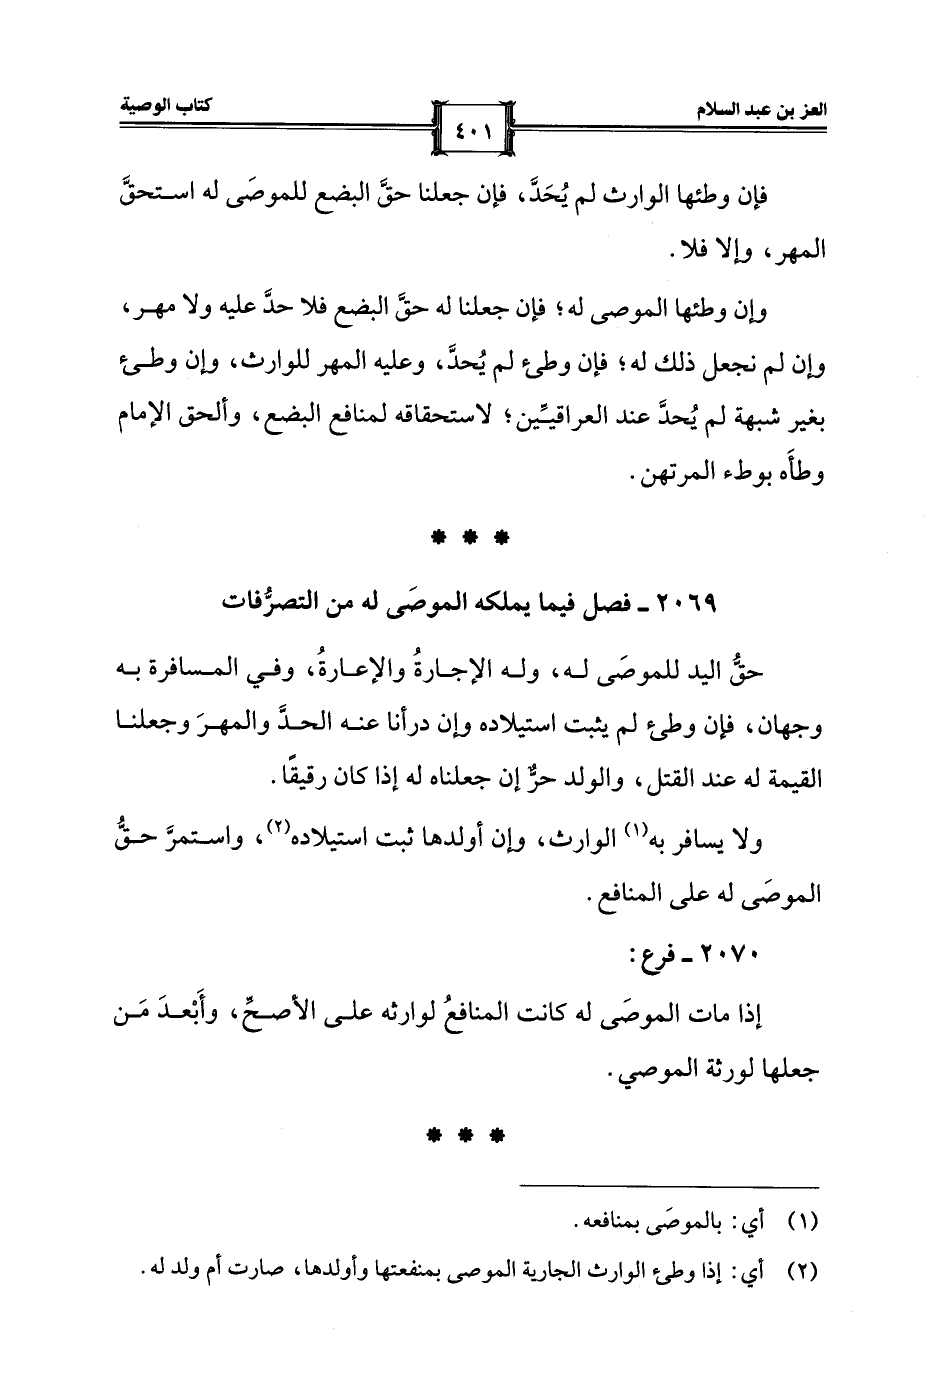 العز بن عبد السلام
٤٠١
كتاب الوصية
فإن وطئها الوارث لم يُحَدَّ، فإن جعلنا حقَّ البضع للموصَى له استحقَّ
المهر، وإلا فلا.
وإن وطئها الموصى له؛ فإن جعلنا له حقَّ البضع فلا حدَّ عليه ولا مهر،
وإن لم نجعل ذلك له؛ فإن وطئ لم يُحدَّ، وعليه المهر للوارث، وإن وطئ
بغير شبهة لم يُحدَّ عند العراقيِّين؛ لاستحقاقه لمنافع البضع، وألحق الإمام
وطأَه بوطء المرتهن.
* * *
٢٠٦٩ - فصل فيما يملكه الموصَى له من التصرُّفات
حقُّ اليد للموصَى له، وله الإجارةُ والإعارةُ، وفي المسافرة به
وجهان، فإن وطئ لم يثبت استيلاده وإن درأنا عنه الحدَّ والمهرَ وجعلنا
القيمة له عند القتل، والولد حرٌّ إن جعلناه له إذا كان رقيقًا.
ولا يسافر به(١) الوارث، وإن أولدها ثبت استيلاده(٢)، واستمرَّ حقُّ
الموصَى له على المنافع.
٢٠٧٠ - فرع:
إذا مات الموصَى له كانت المنافعُ لوارثه على الأصحِّ، وأَبْعدَ مَن
جعلها لورثة الموصي.
* * *
(١) أي: بالموصَى بمنافعه.
(٢) أي: إذا وطئ الوارث الجارية الموصى بمنفعتها وأولدها، صارت أم ولد له.